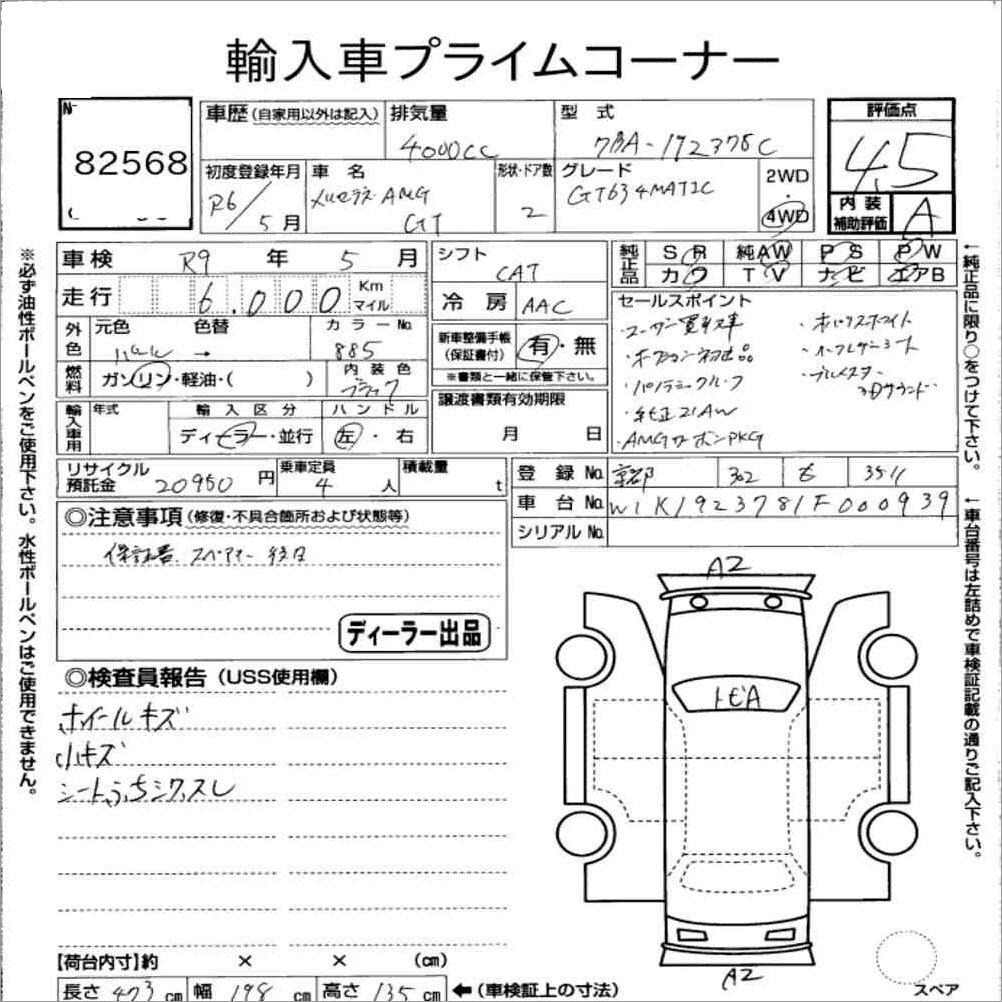 輸入車プライムコーナー
No
82568
車歴(自家用以外は記入)
排気量
4000cc
型 式
7BA-192378C
評価点
4.5
初度登録年月
R6/5月
車 名
メルセデス AMG
GT
形状・ドア数
2
グレード
GT63 4MATIC
2WD
・
4WD
内 装
補助評価
A
車検 R9 年 5 月
シフト
CAT
純正品
SR 純AW PS PW
カワ TV ナビ エアB
走行 6,000 Km マイル
冷 房 AAC
外色
元色 色替 カラーNo.
パール → 885
新車整備手帳
(保証書付)
有・無
※書類と一緒に保管下さい。
燃料
ガソリン・軽油・( )
内 装 色
ブラック
譲渡書類有効期限
月 日
輸入車用
年式
輸 入 区 分
ディーラー・並行
ハ ン ド ル
左・右
セールスポイント
・ユーザー買取車
・パノラミックルーフ
・純正21AW
・AMGカーボンPKG
・オパリスホワイト
・ブルメスター
3Dサウンド
リサイクル
預託金
20950 円
乗車定員
4 人
積載量
t
登 録 No. 京都 302 も 3511
車 台 No. W1K1923781F000939
シリアル No.
◎注意事項(修復・不具合箇所および状態等)
保証書、スペアキー 後日
ディーラー出品
◎検査員報告(USS使用欄)
ホイールキズ
小キズ
シートふちシワ、スレ
A2
トビA
A2
スペア
【荷台内寸】約 × × (cm)
長さ 473 cm 幅 198 cm 高さ 135 cm ←(車検証上の寸法)
※必ず油性ボールペンをご使用下さい。水性ボールペンはご使用できません。
←純正品に限り○をつけて下さい。
←車台番号は左詰めで車検証記載の通りご記入下さい。